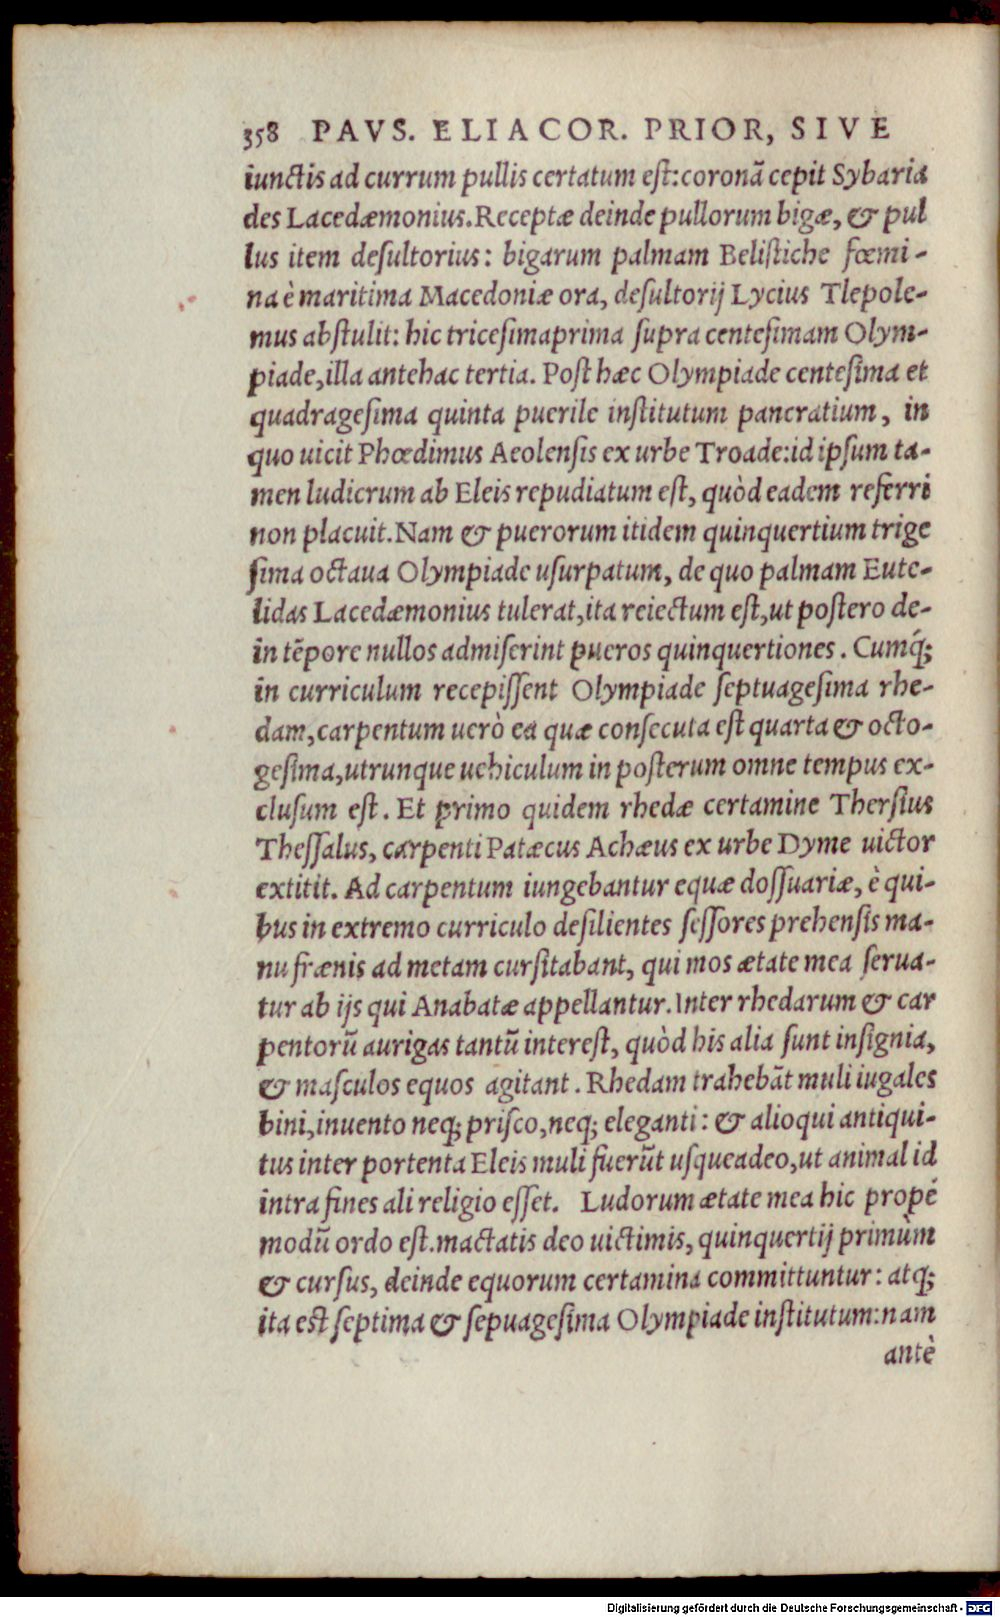 358 PAVS. ELIACOR. PRIOR, SIVE
iunctis ad currum pullis certatum est: coronã cepit Sybaria
des Lacedæmonius. Receptæ deinde pullorum bigæ, & pul
lus item desultorius: bigarum palmam Belistiche fœmi-
na è maritima Macedoniæ ora, desultorij Lycius Tlepole-
mus abstulit: hic tricesimaprima supra centesimam Olym-
piade, illa antehac tertia. Post hæc Olympiade centesima et
quadragesima quinta puerile institutum pancratium, in
quo uicit Phœdimus Aeolensis ex urbe Troade: id ipsum ta-
men ludicrum ab Eleis repudiatum est, quòd eadem referri
non placuit. Nam & puerorum itidem quinquertium trige
sima octaua Olympiade usurpatum, de quo palmam Eute-
lidas Lacedæmonius tulerat, ita reiectum est, ut postero de-
in tẽpore nullos admiserint pueros quinquertiones. Cumq́;
in curriculum recepissent Olympiade septuagesima rhe-
dam, carpentum uerò ea quæ consecuta est quarta & octo-
gesima, utrunque uehiculum in posterum omne tempus ex-
clusum est. Et primo quidem rhedæ certamine Thersius
Thessalus, carpenti Patæcus Achæus ex urbe Dyme uictor
extitit. Ad carpentum iungebantur equæ dossuariæ, è qui-
bus in extremo curriculo desilientes sessores prehensis ma-
nu frænis ad metam cursitabant, qui mos ætate mea serua-
tur ab ijs qui Anabatæ appellantur. Inter rhedarum & car
pentorũ aurigas tantũ interest, quòd his alia sunt insignia,
& masculos equos agitant. Rhedam trahebãt muli iugales
bini, inuento neq; prisco, neq; eleganti: & alioqui antiqui-
tus inter portenta Eleis muli fuerũt usqueadeo, ut animal id
intra fines ali religio esset. Ludorum ætate mea hic propé
modũ ordo est. mactatis deo uictimis, quinquertij primùm
& cursus, deinde equorum certamina committuntur: atq;
ita est septima & sepuagesima Olympiade institutum: nam
antè
Digitalisierung gefördert durch die Deutsche Forschungsgemeinschaft - DFG